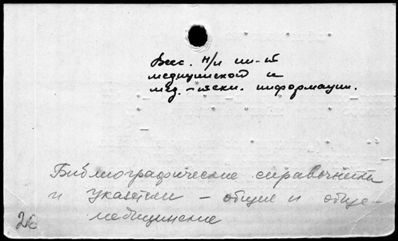 Всес. н/и ин-т
медицинской и
мед.-техн. информации.
Библиографические справочники
и указатели – общие и обще-
медицинские
2б